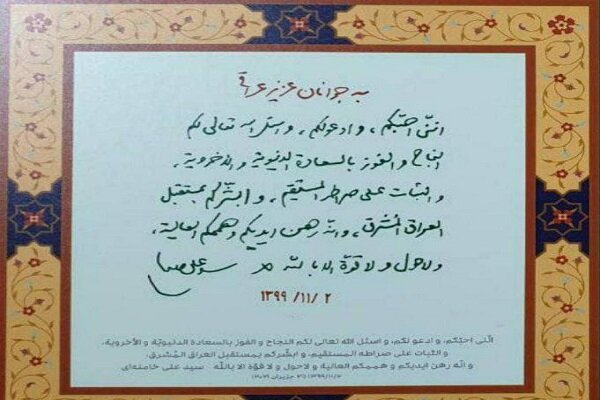 به جوانان عزیز عراق
اننی احبّکم، و ادعو لکم، و اسئل الله تعالی لکم
النجاح و الفوز بالسعادة الدنیویة و الأخرویة،
و الثبات علی صراطه المستقیم، و ابشّرکم بمستقبل
العراق المشرق، و انّه رهن ایدیکم و هممکم العالیة،
و لاحول و لا قوّة الا بالله سید علی خامنه‌ای
۱۳۹۹/۱۱/۲
انّنی احبّکم، و ادعو لکم، و اسئل الله تعالی لکم النجاح و الفوز بالسعادة الدنیویّة و الأخرویة،
و الثبات علی صراطه المستقیم، و ابشّرکم بمستقبل العراق المُشرق،
و انّه رهن ایدیکم و هممکم العالیة و لاحول و لا قوّة الا بالله سید علی خامنه‌ای